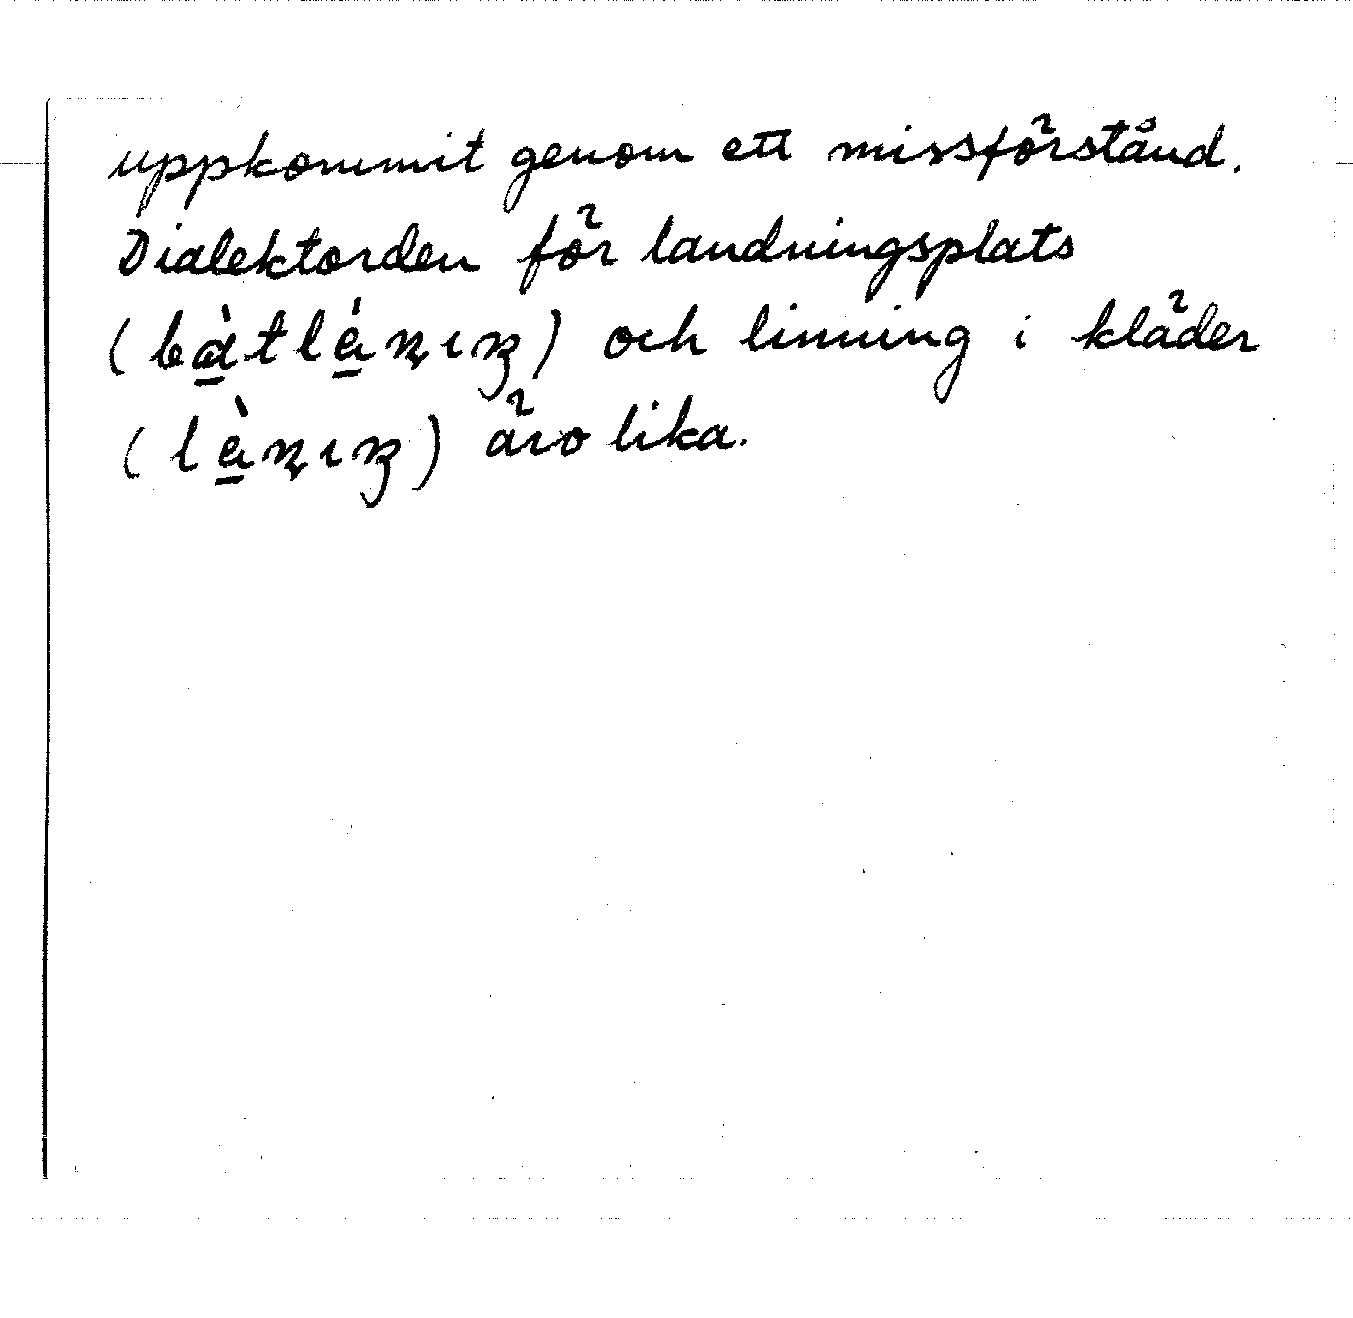 uppkommit genom ett missförstånd.
Dialektorden för landningsplats
(bàtlánıŋ) och linning i kläder
(lànıŋ) äro lika.